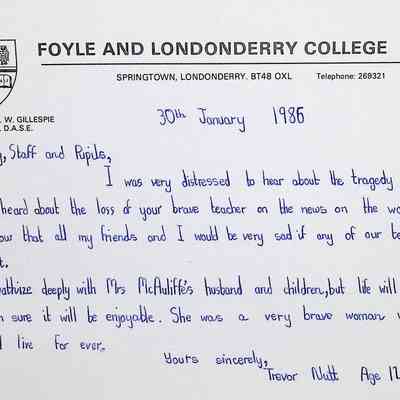 FOYLE AND LONDONDERRY COLLEGE
SPRINGTOWN, LONDONDERRY. BT48 OXL Telephone: 269321
W. GILLESPIE
D.A.S.E.
30th January 1986
, Staff and Pupils,
I was very distressed to hear about the tragedy
heard about the loss of your brave teacher on the news on the
that all my friends and I would be very sad if any of our
deeply with Mrs McAuliffe's husband and children, but life will
sure it will be enjoyable. She was a very brave woman
live for ever.
Yours sincerely,
Trevor Nutt Age